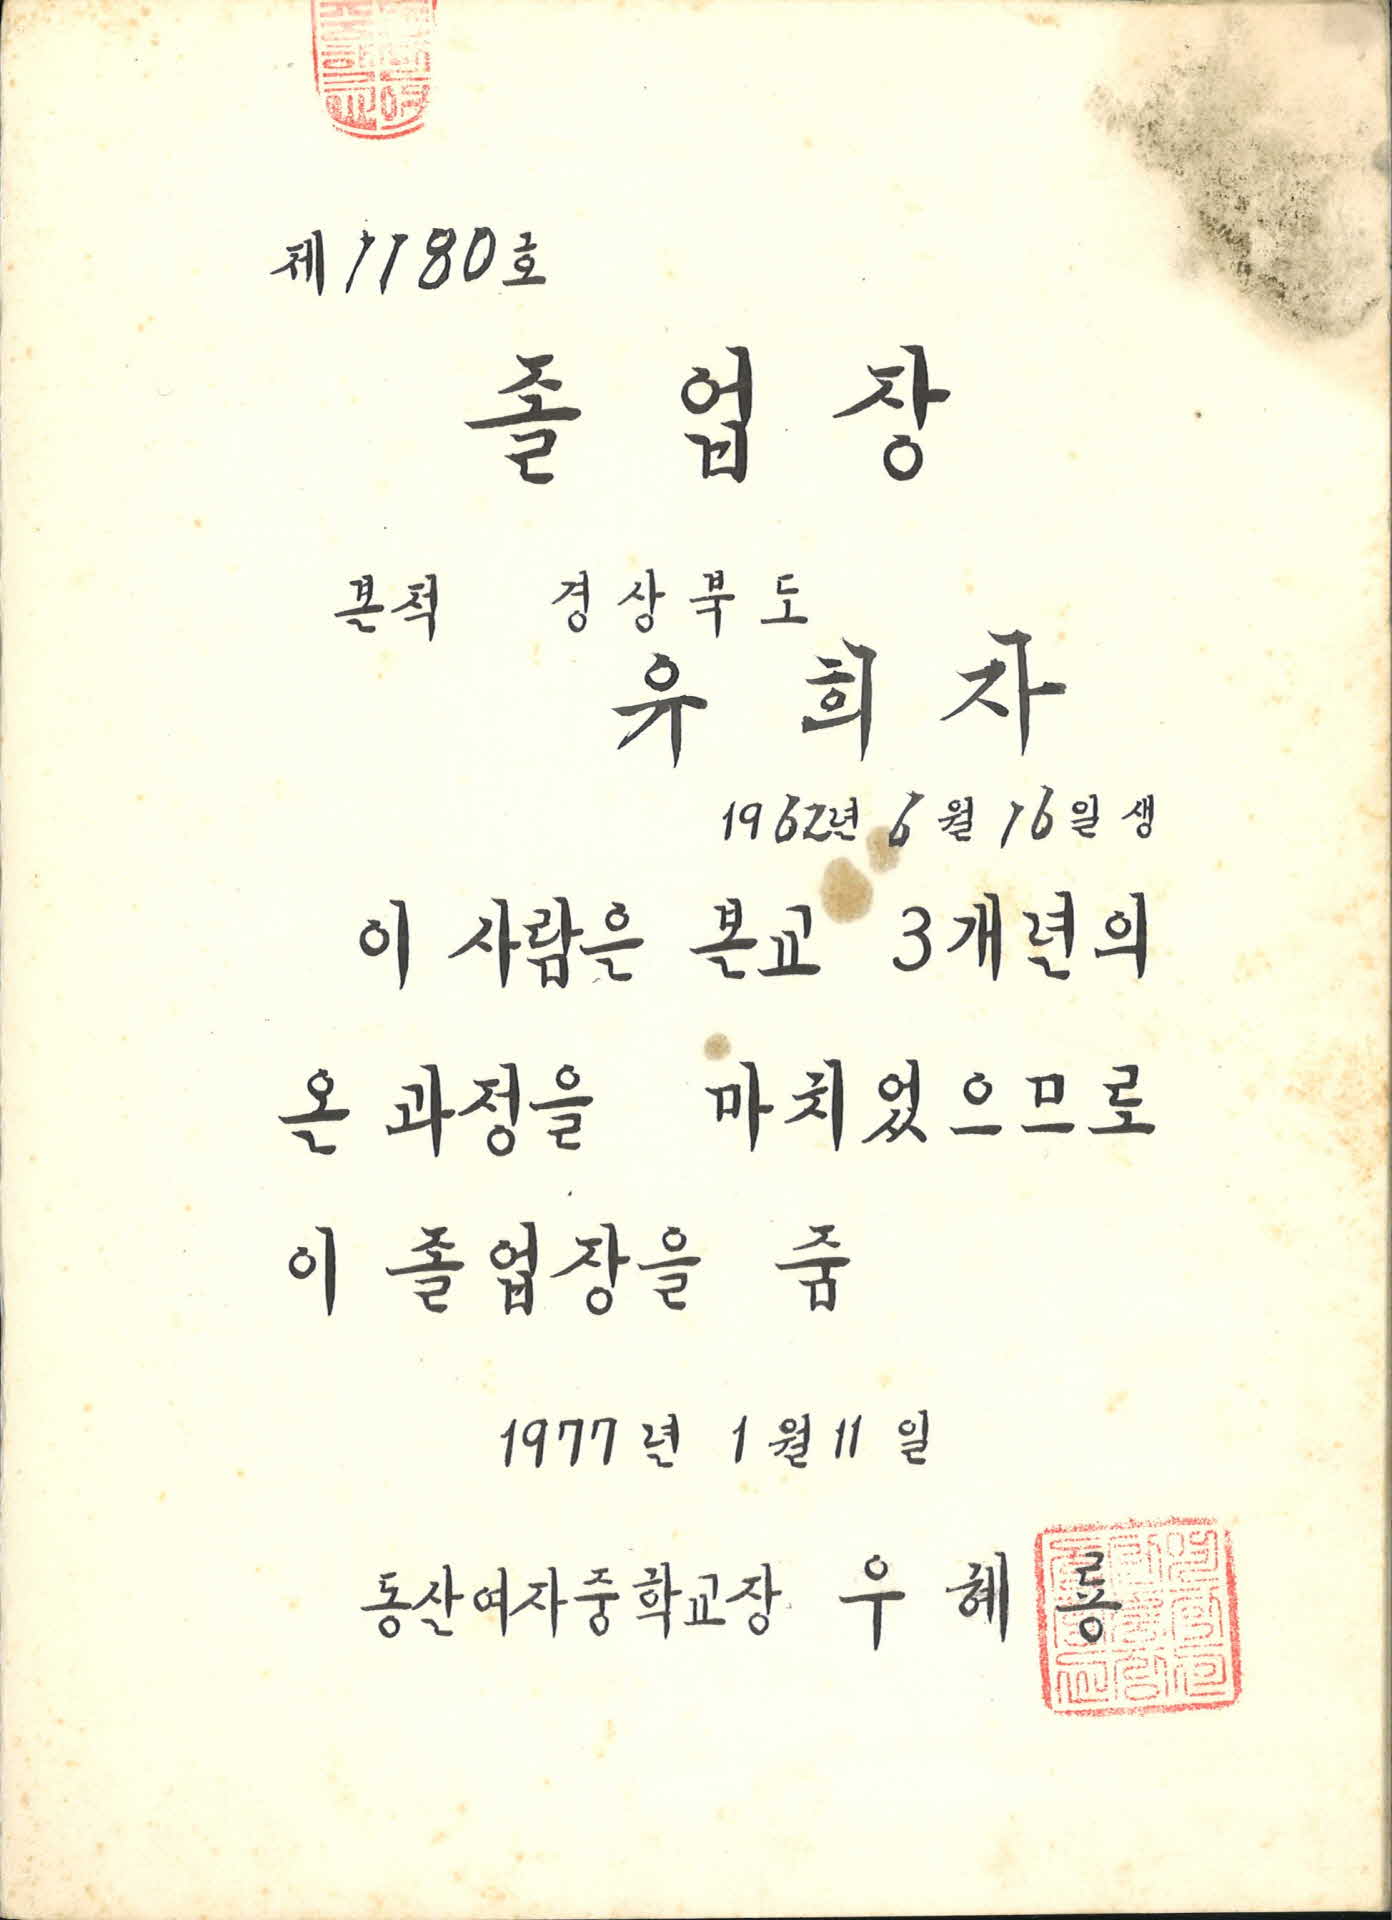 제 1180 호
졸업장
본적 경상북도
유희자
1962년 6월 16일생
이 사람은 본교 3개년의
온 과정을 마치었으므로
이 졸업장을 줌
1977년 1월 11일
동산여자중학교장 우혜룡